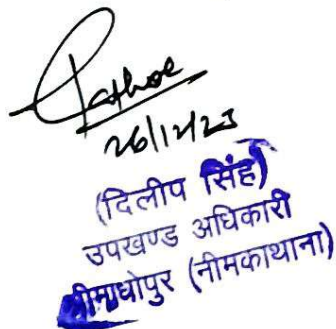 26/12/23
(दिलीप सिंह)
उपखण्ड अधिकारी
श्रीमाधोपुर (नीमकाथाना)